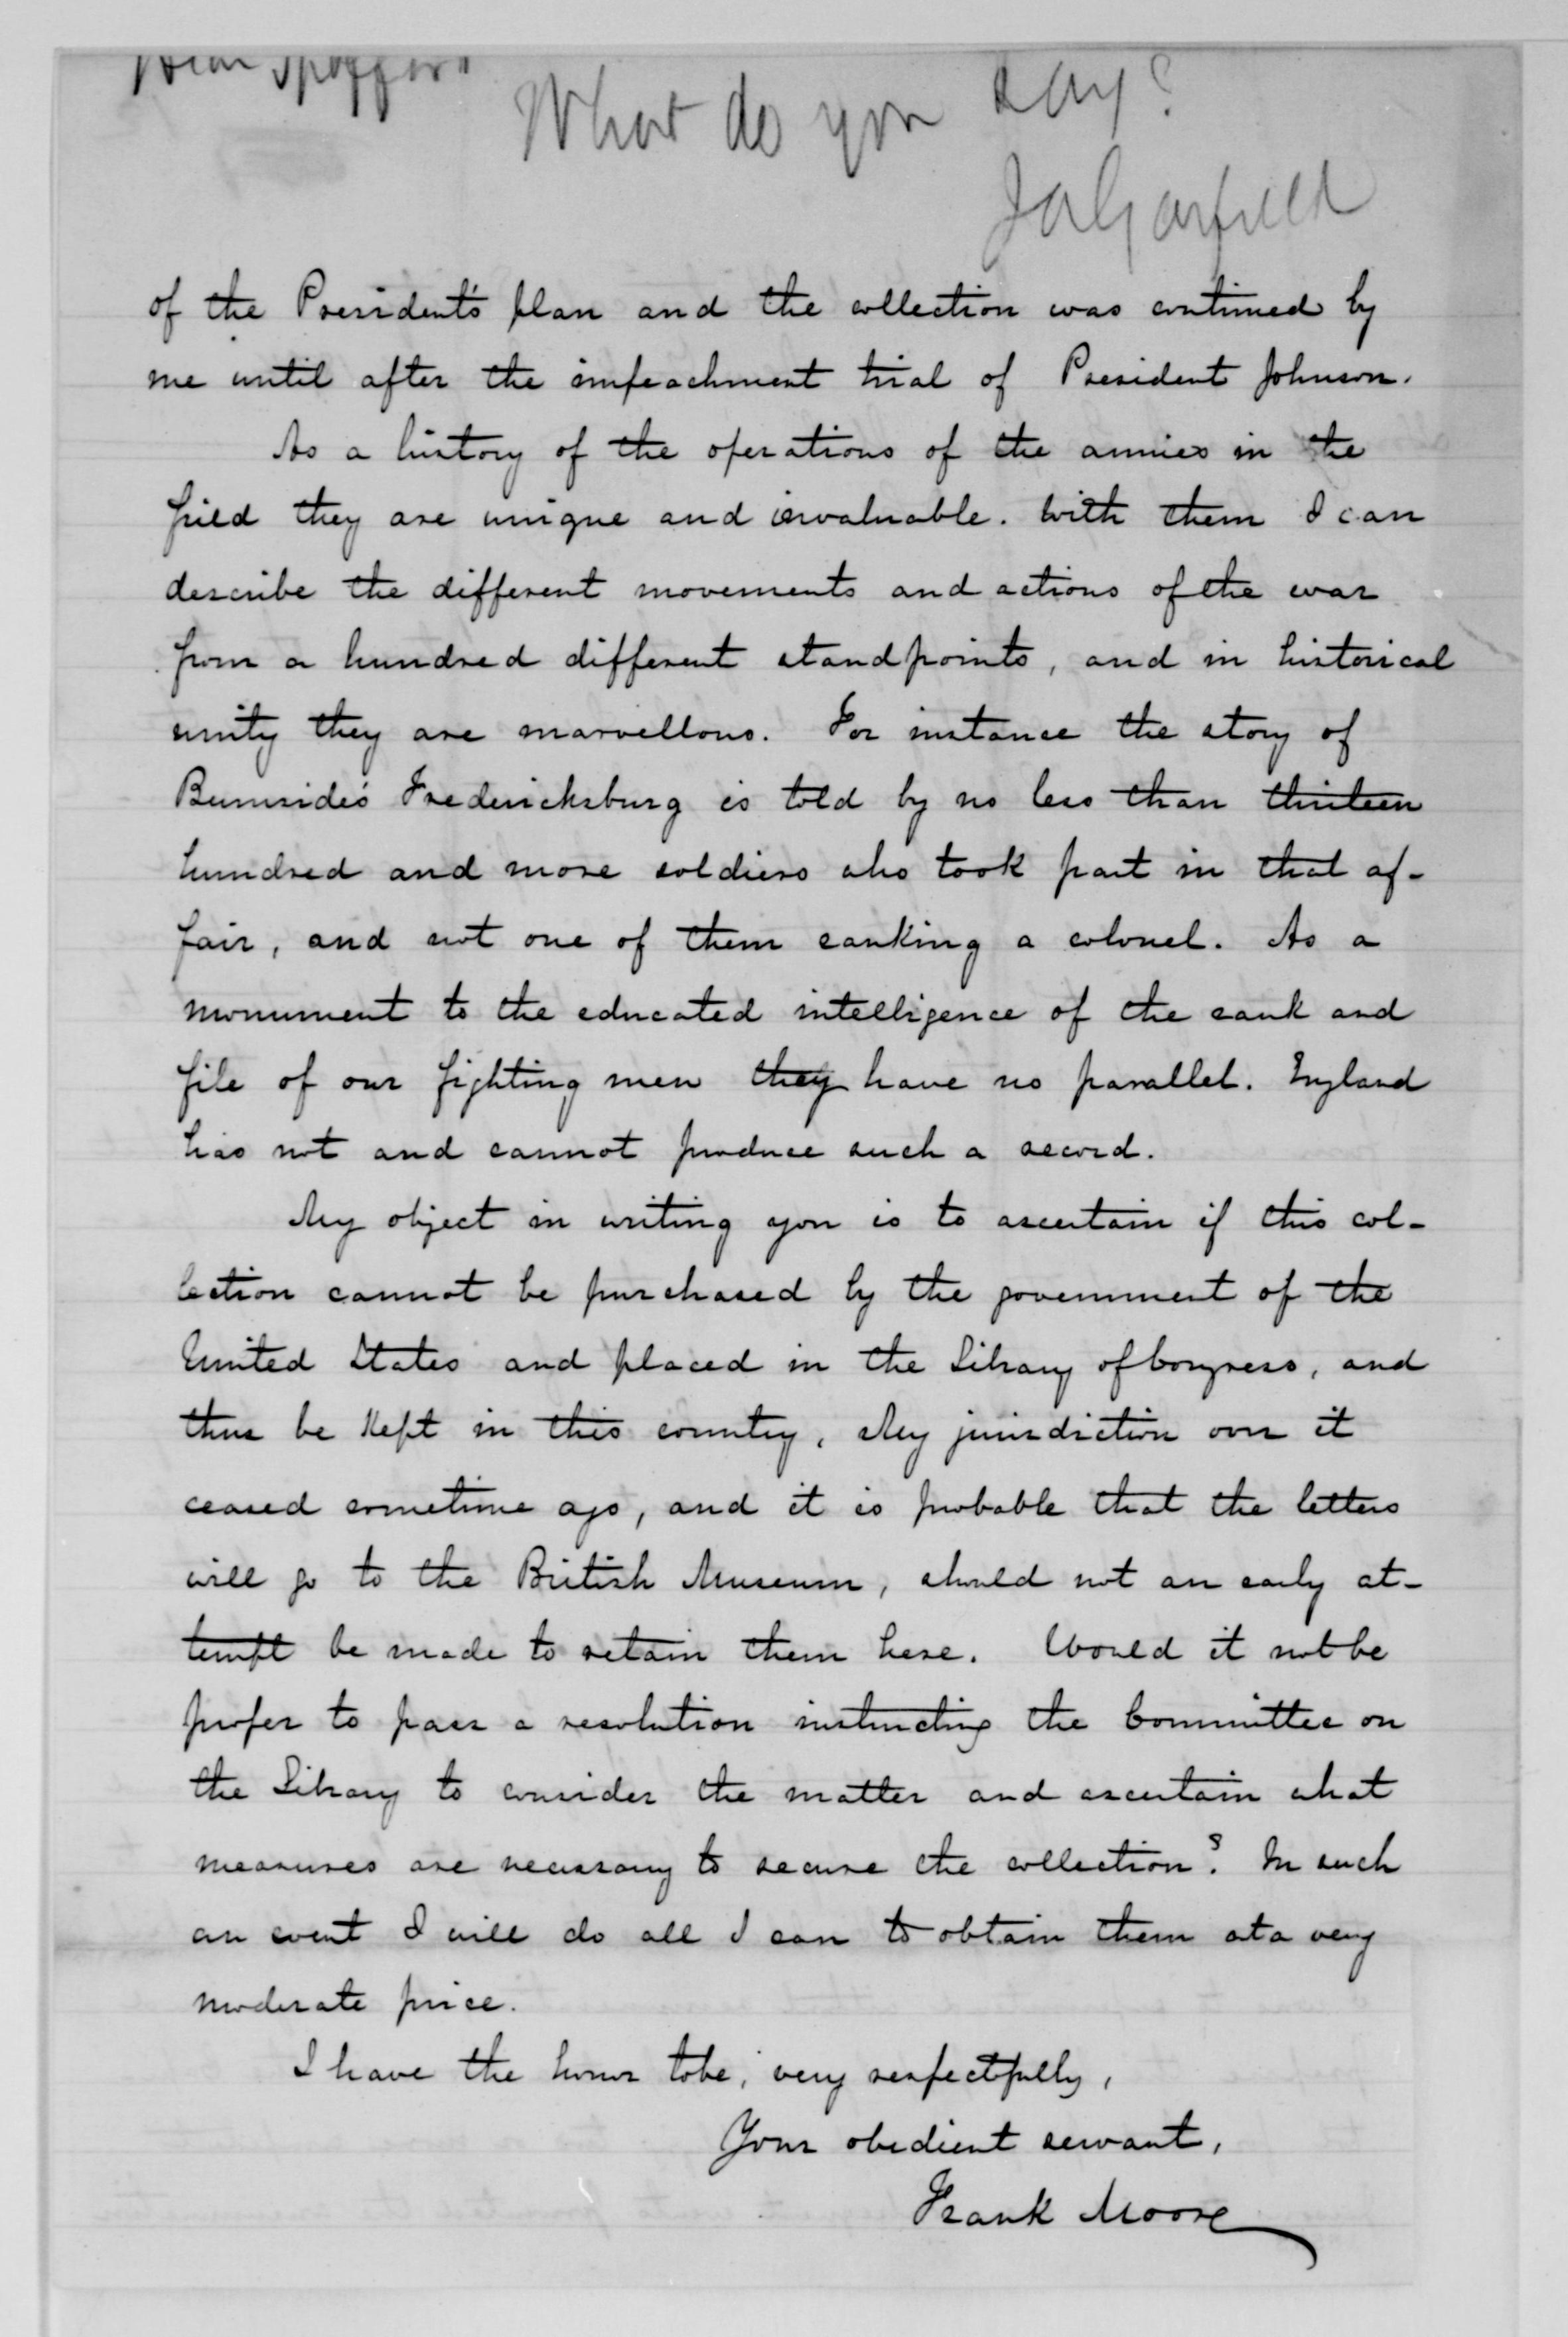 Dear Spofford
What do you say?
JAGarfield
of the President's plan and the collection was continued by
me until after the impeachment trial of President Johnson.
As a history of the operations of the armies in the
field they are unique and invaluable. With them I can
describe the different movements and actions of the war
from a hundred different standpoints, and in historical
unity they are marvellous. For instance the story of
Burnside's Fredericksburg is told by no less than thirteen
hundred and more soldiers who took part in that af-
fair, and not one of them ranking a colonel. As a
monument to the educated intelligence of the rank and
file of our fighting men they have no parallel. England
has not and cannot produce such a record.
My object in writing you is to ascertain if this col-
lection cannot be purchased by the government of the
United States and placed in the Library of Congress, and
thus be kept in this country. My jurisdiction over it
ceased sometime ago, and it is probable that the letters
will go to the British Museum, should not an early at-
tempt be made to retain them here. Would it not be
proper to pass a resolution instructing the Committee on
the Library to consider the matter and ascertain what
measures are necessary to secure the collection? In such
an event I will do all I can to obtain them at a very
moderate price.
I have the honor to be, very respectfully,
Your obedient servant,
Frank Moore